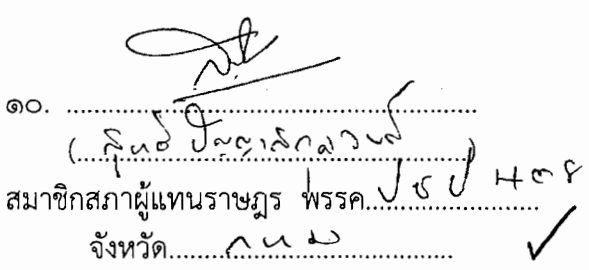 ๑๐. ........................................
(สุทธิ ปัญญาสกุลวงศ์)
สมาชิกสภาผู้แทนราษฎร พรรค ปชป
จังหวัด กทม